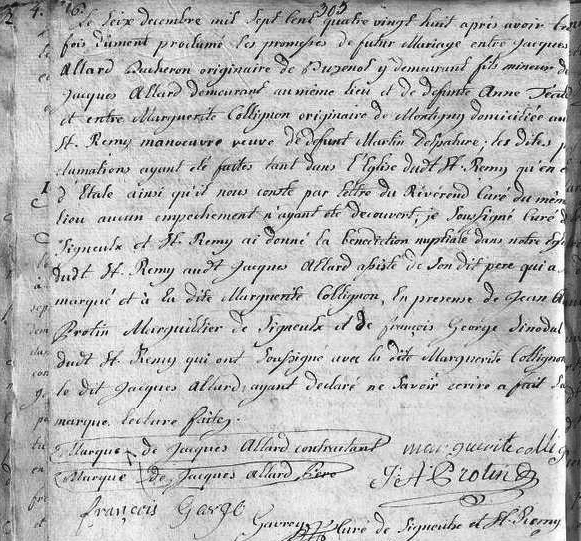 4. 16. 303
Le seix decembre mil sept cens quatre vingt huit aprés avoir
fois dument proclamé les promesses de futur Mariage entre Jacques
Allard Bucheron originaire de Buzenol y demeurant fils mineur de
Jacques Allard demeurant au même lieu et de defunte Anne
et entre Marguerite Collignon originaire de Montigny domiciliée au
St. Remy manoeuvre veuve de defunt Martin Delpahure; les dites
clamations ayant été faites tant dans l'Eglise dudt St. Remy qu'en
d'Etale ainsi qu'il nous conste par lettre du Révérend Curé du même
lieu aucun empechement n'ayant été decouvert, je soussigné Curé de
Signeulx et St. Remy ai donné la bénédiction nuptiale dans notre
dudt St. Remy audt Jacques Allard assisté de son dit pere qui a
marqué et à la dite Marguerite Collignon, En presense de Jean
Protin Marguillier de Signeulx et de françois George Sinodal
dudt St. Remy qui ont soussigné avec la dite Marguerite Collignon
le dit Jacques Allard, ayant declaré ne savoir ecrire a fait sa
marque. Lecture faite.
Marque de Jacques Allard contractant marguerite colleg
Marque de Jacques Allard Pere J: A: Protin
françois Gorge
Gavroy Curé de Signeulx et St. Remy